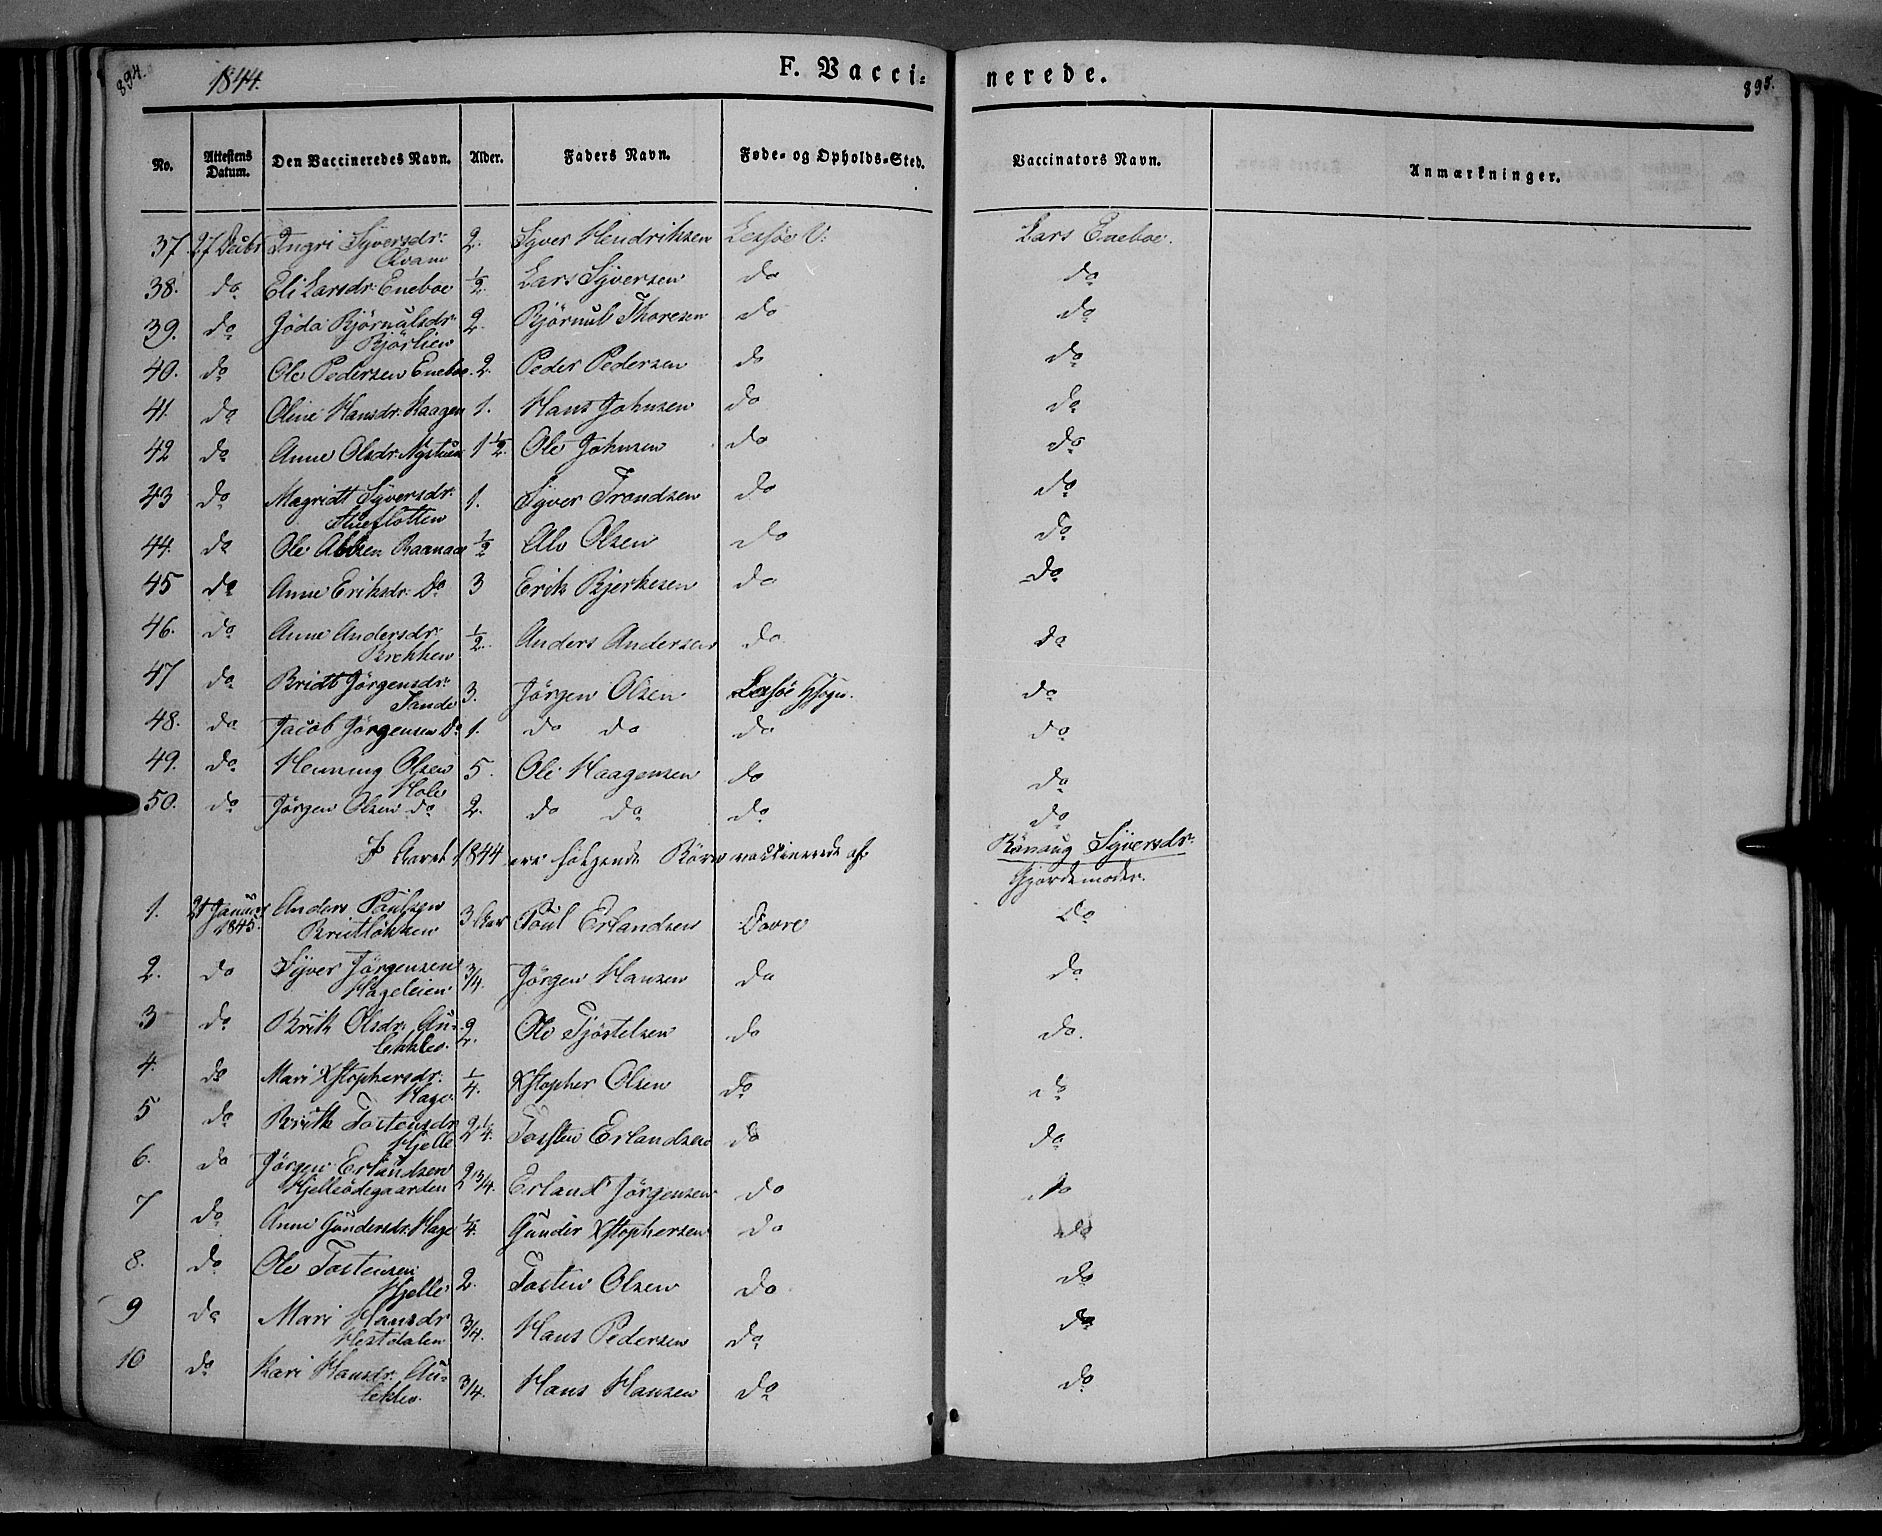 894.
1844.
F. Vacci-
nerede.
895.
No. Attestens Datum. Den Vaccineredes Navn. Alder. Faders Navn. Føde- og Opholds-Sted. Vaccinators Navn. Anmærkninger.
37 27 Decbr Ingri Syversdr: Qvam 2. Syver Hendriksen Lesjøe V: Lars Eneboe.
38. do Eli Larsdr: Eneboe 1/2. Lars Syversen do do
39. do Jøda Bjørnulsdr Bjørlien 2. Bjørnul Thoresen do do
40. do Ole Pedersen Eneboe. 2. Peder Pedersen do do
41. do Oline Hansdr: Haagen 1. Hans Johnsen do do
42 do Anne Olsdr: Nystuen 1 1/2. Ole Johnsen do do
43 do Magridt Syversdr: Stueflotten 1. Syver Trondsen do do
44. do Ole Raanaas 1/2 Alv Olsen do do
45 do Anne Eriksdr: Do 3 Erik Bjerkesen do do
46. do Anne Andersdr: Brekken 1/2. Anders Andersen do do
47 do Bridt Jörgensdr: Sande 3. Jörgen Olsen Lesjöe HSogn. do
48. do Jacob Jörgensen Do 1. do do do do
49. do Henning Olsen Hole 5. Ole Haagensen do do
50. do Jörgen Olsen do 2. do do do do
I Aaret 1844 ere følgende Børn vaccinerede af: Rönnaug Syversdr: Gjordemoder.
1. 21 Januar 1845. Anders Paulsen Brietløkken 3 Aar Poul Erlandsen Dovre Do
2. do Syver Jörgensen Hageleien 3/4. Jörgen Hansen do do
3 do Brith Olsdr: Au-lekkle. 2. Ole Tjöstelsen do do.
4. do Mari Xstophersdr: Hage 1/4. Xstopher Olsen do do
5 do Brith Tostensdr Hjelle 2 1/4. Tosten Erlandsen do do
6. do Jörgen Erlandsen Hjelleödegaarden 2 3/4. Erland Jörgensen do do
7 do Anne Gundersdr: Hage 1/4. Gunder Xstophersen do do
8. do Ole Tostensen Hjelle 2. Tosten Olsen do do
9 do Mari Hansdr Hestdalen 3/4. Hans Pedersen do do
10 do Kari Hansdr: Au-lekkle. 3/4. Hans Hansen do do